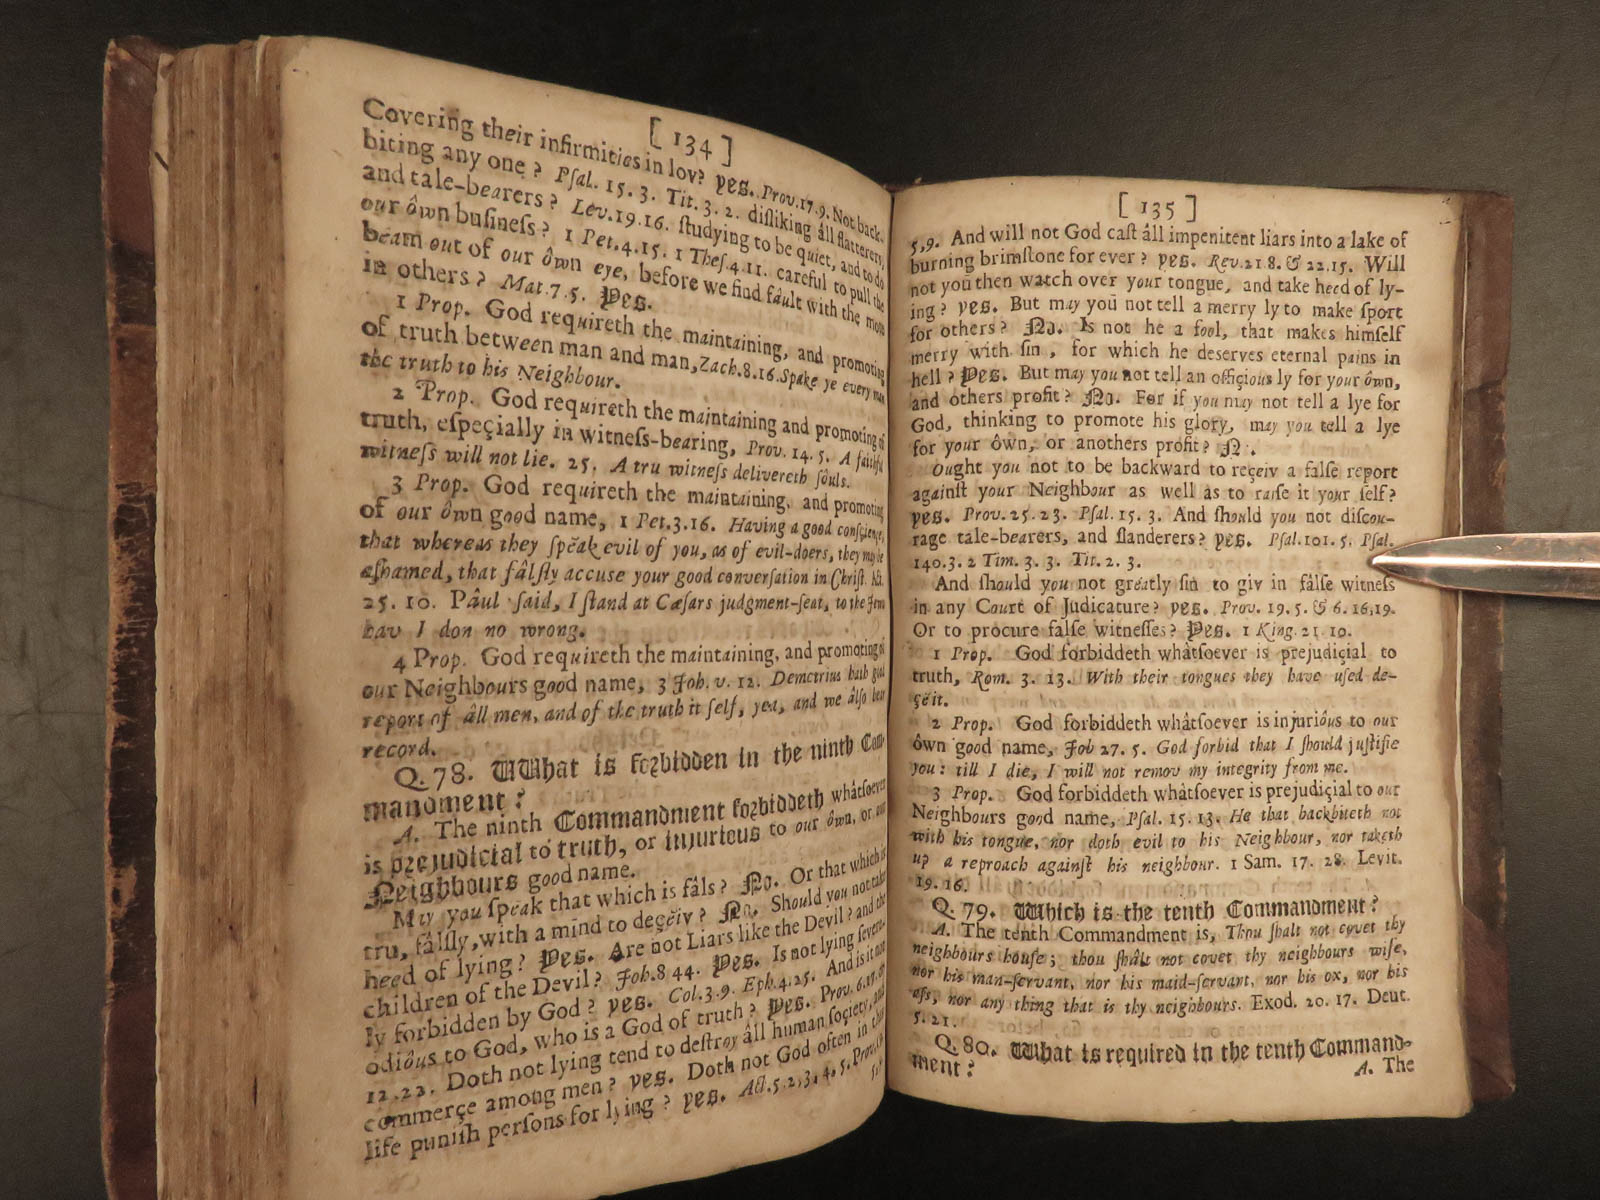 [ 134 ]
Covering their infirmities in lov? yes. Prov.17.9. Not back-
biting any one? Pſal. 15. 3. Tit. 3. 2. diſliking âll flatterers,
and tale-bearers? Lev.19.16. ſtudying to be quiet, and to do
our ôwn buſineſs? 1 Pet.4.15. 1 Theſ.4.11. careful to pull the
beam out of our ôwn eye, before we find fâult with the mote
in others? Mat.7.5. Yes.
1 Prop. God requireth the maintaining, and promoting
of truth between man and man, Zach.8.16. Speke ye every man
the truth to his Neighbour.
2 Prop. God requireth the maintaining and promoting of
truth, eſpeçially in witneſs-bearing, Prov. 14. 5. A faithful
witneſs will not lie. 25. A tru witneſs delivereth ſôuls.
3 Prop. God requireth the maintaining, and promoting
of our ôwn good name, 1 Pet.3.16. Having a good conſçience,
that whereas they ſpĕak evil of you, as of evil-doers, they may be
aſhamed, that fâlſly accuse your good converſation in Chriſt. Act.
25. 10. Pâul ſaid, I ſtand at Cæſars judgment-ſeat, to the Jews
hav I don no wrong.
4 Prop. God requireth the maintaining, and promoting of
our Neighbours good name, 3 Joh. v. 12. Demetrius hath good
report of âll men, and of the truth it ſelf, yea, and we âlſo bear
record.
Q. 78. What is forbidden in the ninth Com-
mandment?
A. The ninth Commandment forbiddeth whâtſoever
is prejudicial to truth, or injurious to our ôwn, or our
Neighbours good name.
May you ſpeak that which is fâls? No. Or that which is
tru, fâlſly, with a mind to deçĕiv? No. Should you not take
heed of lying? Yes. Are not Liars like the Devil? and the
children of the Devil? Joh.8 44. Yes. Is not lying ſevere-
ly forbidden by God? yes. Col.3.9. Eph.4.25. And is it not
odiôus to God, who is a God of truth? Yes. Prov. 6.17.
12.22. Doth not lying tend to deſtroy âll human ſoçiety, and
commerçe among men? yes. Doth not God often in this
life puniſh perſons for lying? yes. Act.5.2,3,4,5. Prov.
[ 135 ]
5,9. And will not God caſt âll impenitent liars into a lake of
burning brimſtone for ever? yes. Rev.21.8. & 22.15. Will
not yoū then watch over your tongue, and take heed of ly-
ing? yes. But may yoū not tell a merry ly to make ſport
for others? No. Is not he a fool, that makes himſelf
merry with ſin, for which he deserves eternal pains in
hell? Yes. But may you not tell an offiçious ly for your ôwn,
and others profit? No. For if you may not tell a lye for
God, thinking to promote his glory, may you tell a lye
for your ôwn, or anothers profit? N .
Ought you not to be backward to reçeiv a falſe report
againſt your Neighbour as well as to raiſe it your ſelf?
yes. Prov. 25. 23. Pſal. 15. 3. And ſhould you not diſcou-
rage tale-bearers, and ſlanderers? yes. Pſal.101. 5. Pſal.
140.3. 2 Tim. 3. 3. Tit. 2. 3.
And ſhould you not greatly ſin to giv in fâlſe witneſs
in any Court of Judicature? yes. Prov. 19. 5. & 6. 16,19.
Or to procure falſe witneſſes? Yes. 1 King. 21. 10.
1 Prop. God forbiddeth whâtſoever is prejudiçial to
truth, Rom. 3. 13. With their tongues they have uſed de-
çĕit.
2 Prop. God forbiddeth whâtſoever is injuriôus to our
ôwn good name, Job 27. 5. God forbid that I ſhould juſtifie
you: till I die, I will not remov my integrity from me.
3 Prop. God forbiddeth whâtſoever is prejudiçial to our
Neighbours good name, Pſal. 15. 13. He that backbiteth not
with his tongue, nor doth evil to his Neighbour, nor taketh
up a reproach againſt his neighbour. 1 Sam. 17. 28. Levit.
19. 16.
Q. 79. Which is the tenth Commandment?
A. The tenth Commandment is, Thou ſhalt not covet thy
neighbours houſe; thou ſhâlt not covet thy neighbours wife,
nor his man-ſervant, nor his maid-ſervant, nor his ox, nor his
aſs, nor any thing that is thy neighbours. Exod. 20. 17. Deut.
5. 21.
Q. 80. What is required in the tenth Command-
ment?
A. The